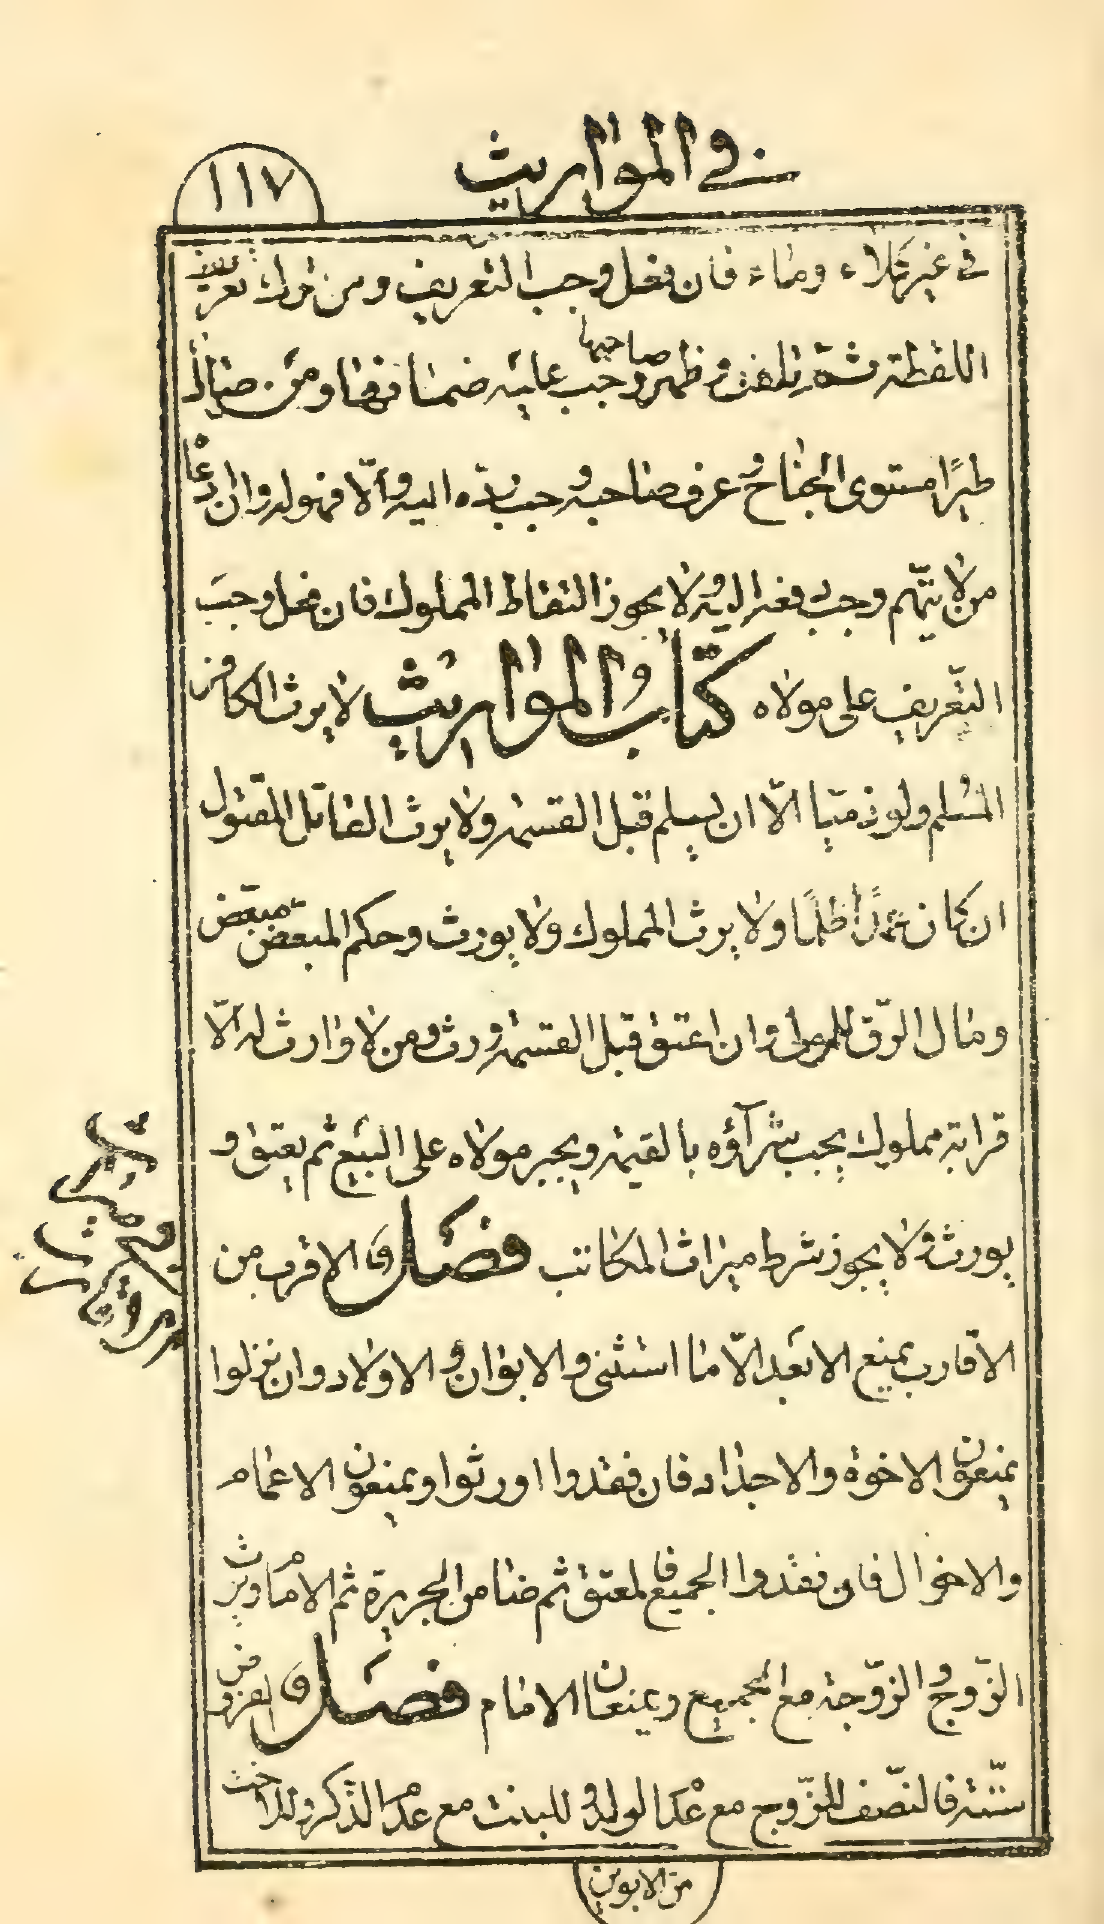 في المواريث
١١٧
في غير كلاء وماء فان فعل وجب التعريف ومن ترك تعريف
اللقطة سنة فتلفت ثم ظهر صاحبها وجب عليه ضمانها ومن صاد
طيرًا مستوى الجناح وعرف صاحبه وجب رده اليه والّا فهو له وان ادعا
من لا يتّهم وجب دفعه اليه ولا يجوز التقاط المملوك فان فعل وجب
التّعريف على مولاه كتاب المواريث لا يرث الكافر
المسلم ولو ذميا الّا ان يسلم قبل القسمة ولا يرث القاتل المقتول
ان كان عمدًا ظلمًا ولا يرث المملوك ولا يورث وحكم المبعض مبعّض
ومال الرّق للمولى وان اعتق قبل القسمة ورث ومن لا وارث له الّا
قرابة مملوك يجب شرآؤه بالقيمة ويجبر مولاه على البيع ثم يعتق و
يورث ولا يجوز شرط ميراث المكاتب فصل و الاقرب من
الاقارب يمنع الابعد الّا ما استثنى والابوان والاولاد وان نزلوا
يمنعون الاخوة والاجداد فان فقدوا اورثوا ويمنعون الاعمام
والاخوال فان فقدوا الجميع فالمعتق ثم ضامن الجريرة ثم الامام ويرث
الزّوج والزّوجة مع الجميع ويمنعان الامام فصل و الفروض
ستّة فالنّصف للزّوج مع عدم الولد وللبنت مع عدم الذكر وللاخت
من الابوين